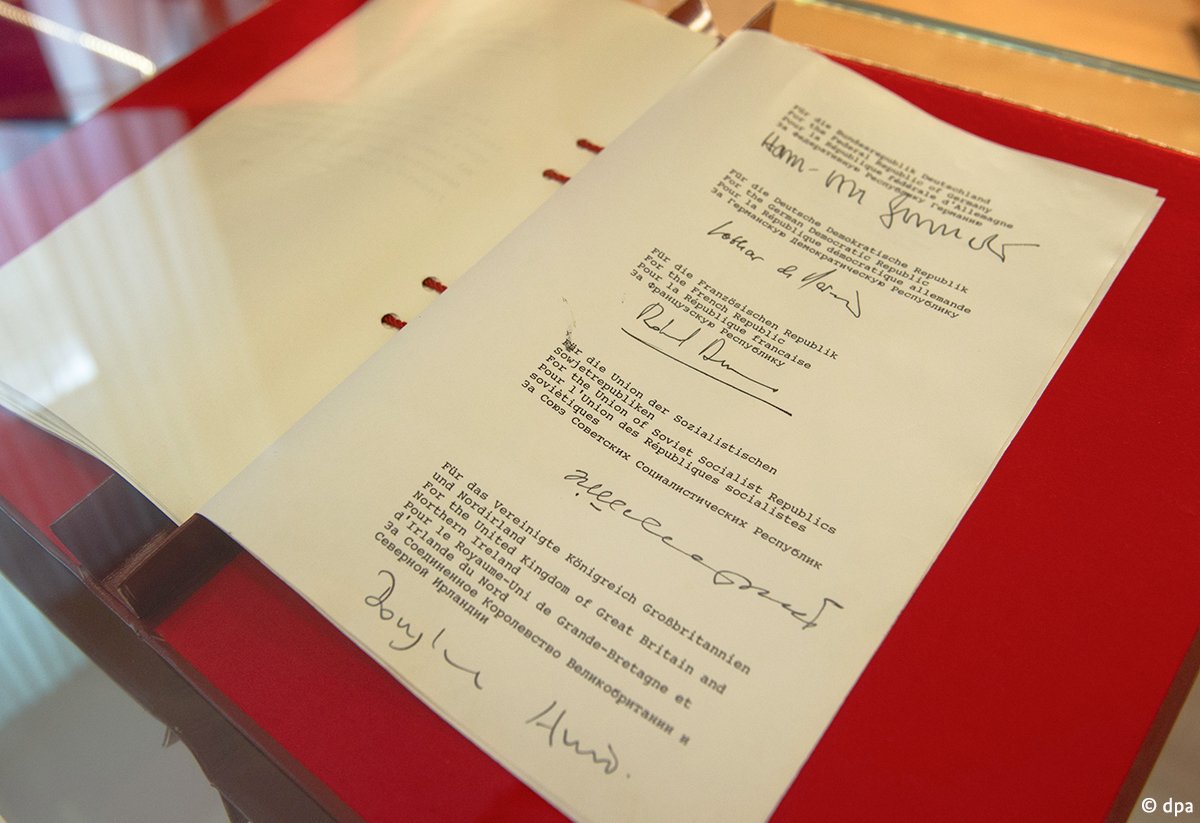 Für die Bundesrepublik Deutschland
For the Federal Republic of Germany
Pour la République fédérale d'Allemagne
За Федеративную Республику Германию
Für die Deutsche Demokratische Republik
For the German Democratic Republic
Pour la République démocratique allemande
За Германскую Демократическую Республику
Lothar de
Für die Französischen Republik
For the French Republic
Pour la République francaise
За Французскую Республику
Roland Dumas
Für die Union der Sozialistischen
Sowjetrepubliken
For the Union of Soviet Socialist Republics
Pour l'Union des Républiques socialistes
soviétiques
За Союз Советских Социалистических Республик
Für das Vereinigte Königreich Großbritannien
und Nordirland
For the United Kingdom of Great Britain and
Northern Ireland
Pour le Royaume-Uni de Grande-Bretagne et
d'Irlande du Nord
За Соединенное Королевство Великобритании и
Северной Ирландии
Douglas Hurd.
© dpa